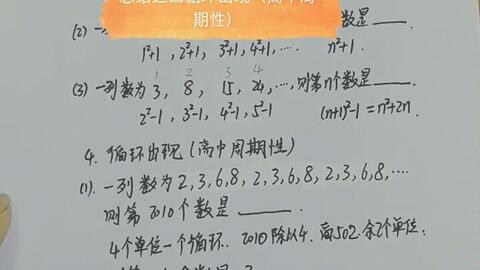 期性）
(2) 一 数是____.
1²+1, 2²+1, 3²+1, 4²+1, .... n²+1.
1 2 3 4
(3) 一列数为3, 8, 15, 24, ...., 则第n个数是____
2²-1, 3²-1, 4²-1, 5²-1 (n+1)²-1 = n²+2n.
4. 循环出现 (高中周期性)
(1). 一列数为2, 3, 6, 8, 2, 3, 6, 8, 2, 3, 6, 8, ....
则第2010个数是____.
4个单位一个循环. 2010除以4. 商502. 余2个单位: